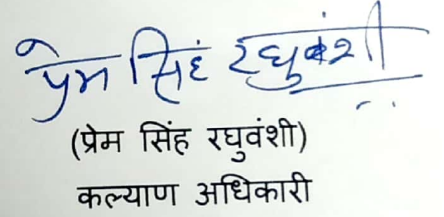 प्रेम सिंह रघुवंशी
(प्रेम सिंह रघुवंशी)
कल्याण अधिकारी